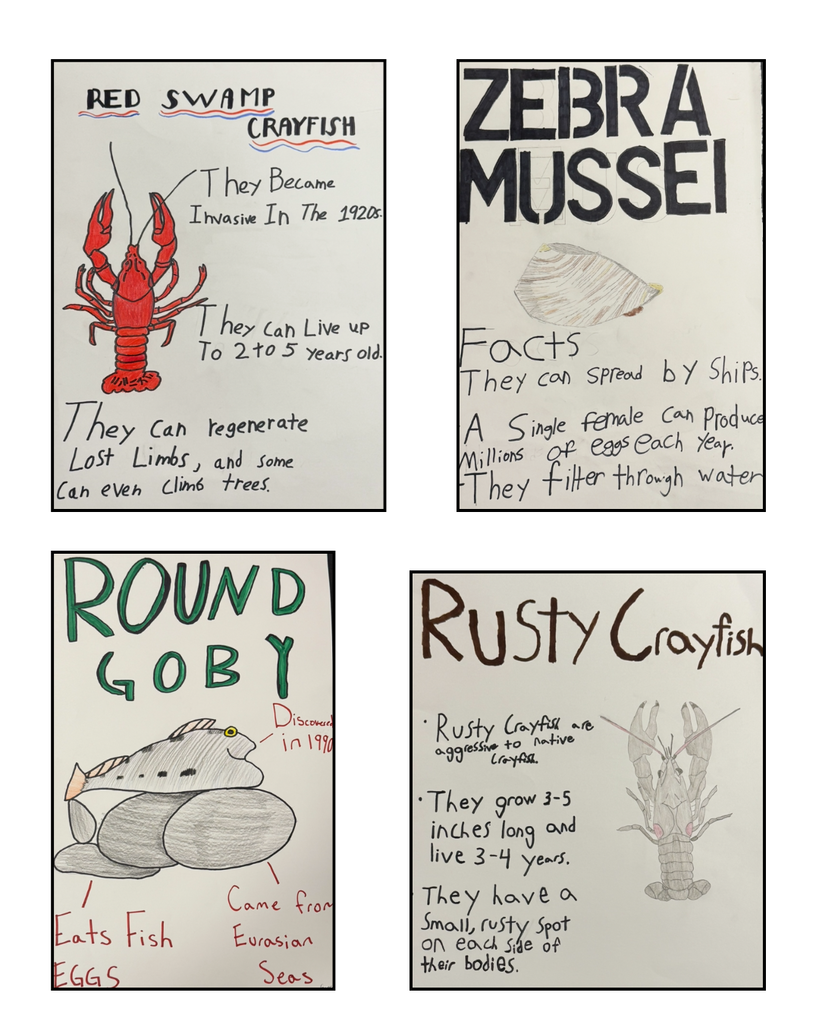 RED SWAMP
CRAYFISH
They Became
Invasive In The 1920s.
They can Live up
To 2 to 5 years old.
They can regenerate
Lost Limbs, and some
can even climb trees.
ZEBRA
MUSSEl
Facts
They can spread by ships.
A Single female can produce
Millions of eggs each year.
They filter through water
ROUND
GOBY
Discovered
in 1990
Eats Fish
EGGS
Came from
Eurasian
Seas
Rusty Crayfish
· Rusty Crayfish are
aggressive to native
Crayfish.
· They grow 3-5
inches long and
live 3-4 years.
They have a
Small, rusty spot
on each side of
their bodies.